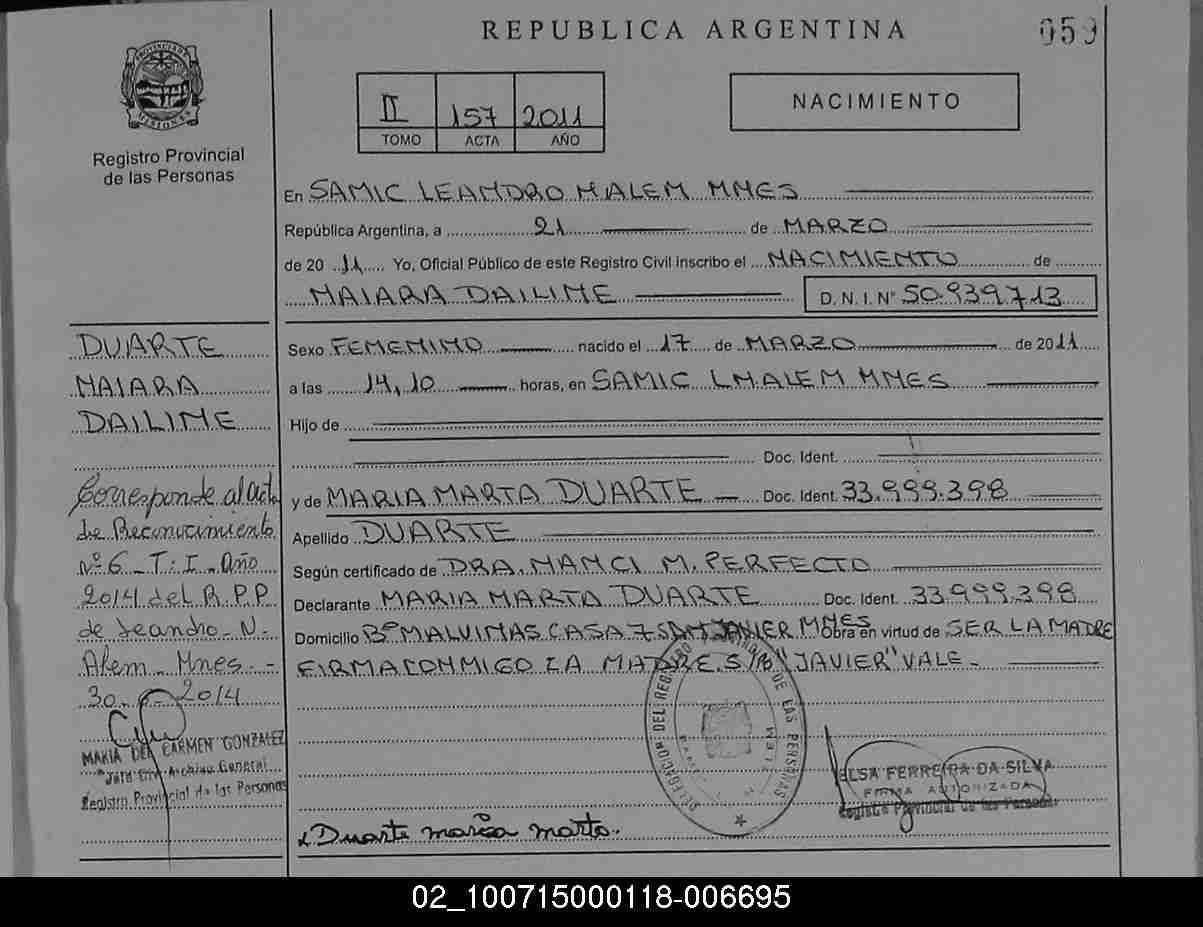 REPUBLICA ARGENTINA
059
PROVINCIA DE
MISIONES
Registro Provincial
de las Personas
II 157 2011
TOMO ACTA AÑO
NACIMIENTO
En SAMIC LEANDRO N ALEM MNES
República Argentina, a 21 de MARZO
de 20 11 Yo, Oficial Público de este Registro Civil inscribo el NACIMIENTO de
NAIARA DAILINE D. N. I. N° 50.939.713
DUARTE
NAIARA
DAILINE
Sexo FEMENINO nacido el 17 de MARZO de 2011
a las 14,10 horas, en SAMIC L N ALEM MNES
Hijo de
Doc. Ident.
y de MARIA MARTA DUARTE Doc. Ident. 33.999.398
Apellido DUARTE
Según certificado de DRA. NANCI M. PERFECTO
Declarante MARIA MARTA DUARTE Doc. Ident. 33.999.398
Domicilio B° MALVINAS CASA 7 SAN JAVIER MNES Obra en virtud de SER LA MADRE
FIRMA CONMIGO LA MADRE. S/B "JAVIER" VALE -
Corresponde al acta
de Reconocimiento
Nº 6 - T: I - Año
2014 del R.P.P
de Leandro - N.
Alem - Mnes. -
30 2014
MARIA DEL CARMEN GONZALEZ
Archivo General
Registro Provincial de las Personas
DELEGACION DEL REGISTRO DE LAS PERSONAS
ELSA FERREIRA DA SILVA
FIRMA AUTORIZADA
Registro Provincial de las Personas
Duarte maria marta.
02_100715000118-006695